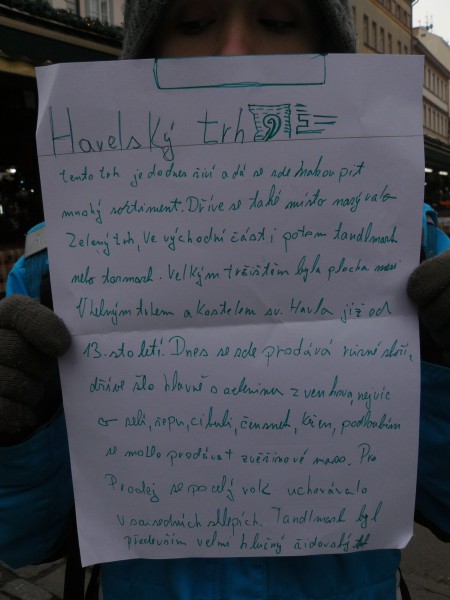 Havelský trh
tento trh je dodnes živí a dá se zde nakoupit
mnohý sortiment. Dříve se také místo nazývalo
Zelený trh, ve východní části potom tandlmark
nebo tarmark. Velkým tržištěm byla plocha mezi
Uhelným trhem a Kostelem sv. Havla již od
13. století. Dnes se zde prodává různé zboží,
dříve šlo hlavně o zeleninu z venkova, nejvíc
o zelí, řepu, cibuli, česnek, křen, podloubím
se mohlo prodávat zvěřinové maso. Pro
Prodej se po celý rok uchovávalo
v sousedních sklepích. Tandlmark byl
především velmi hlučný židovský